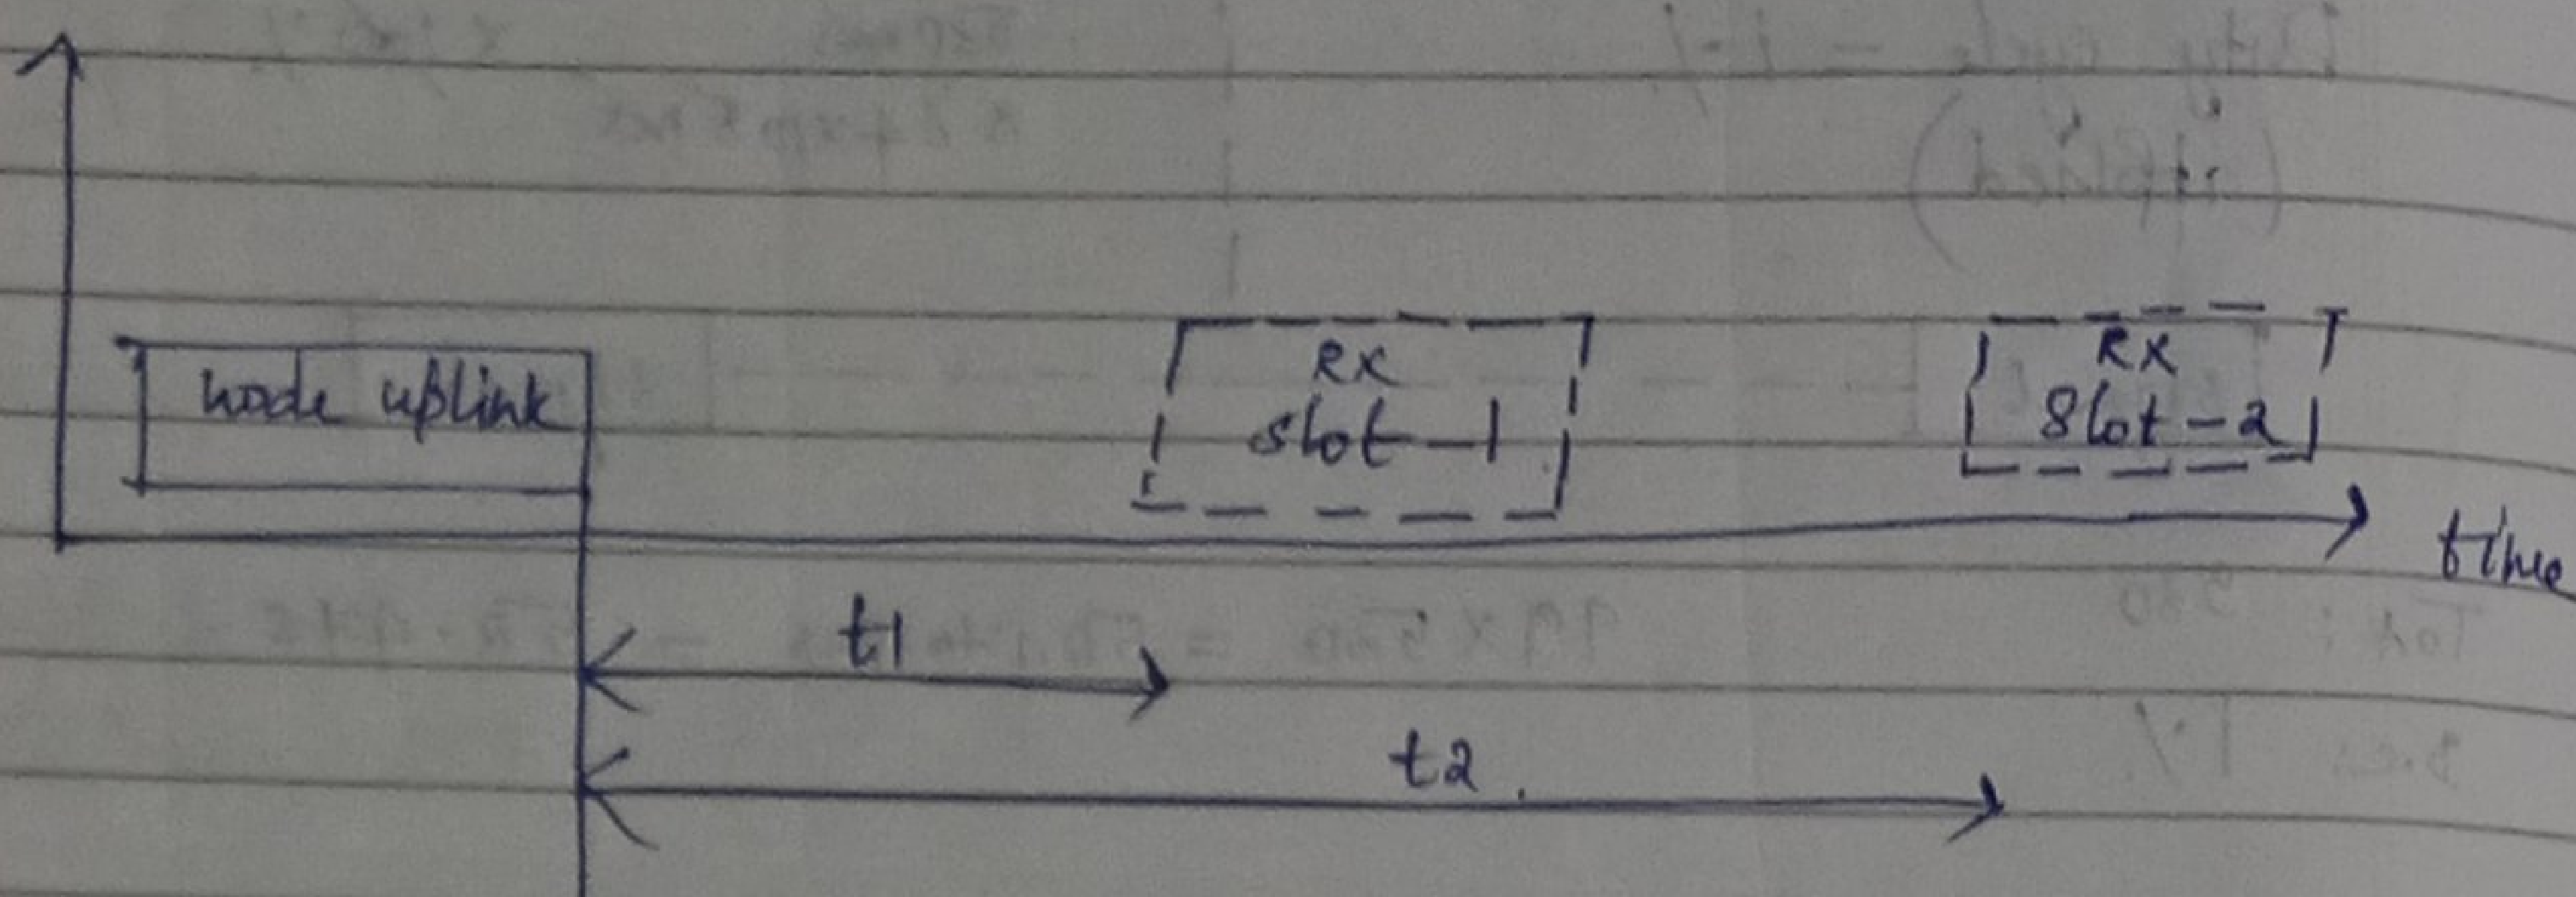 node uplink
Rx
slot-1
Rx
Slot-2
time
t1
t2